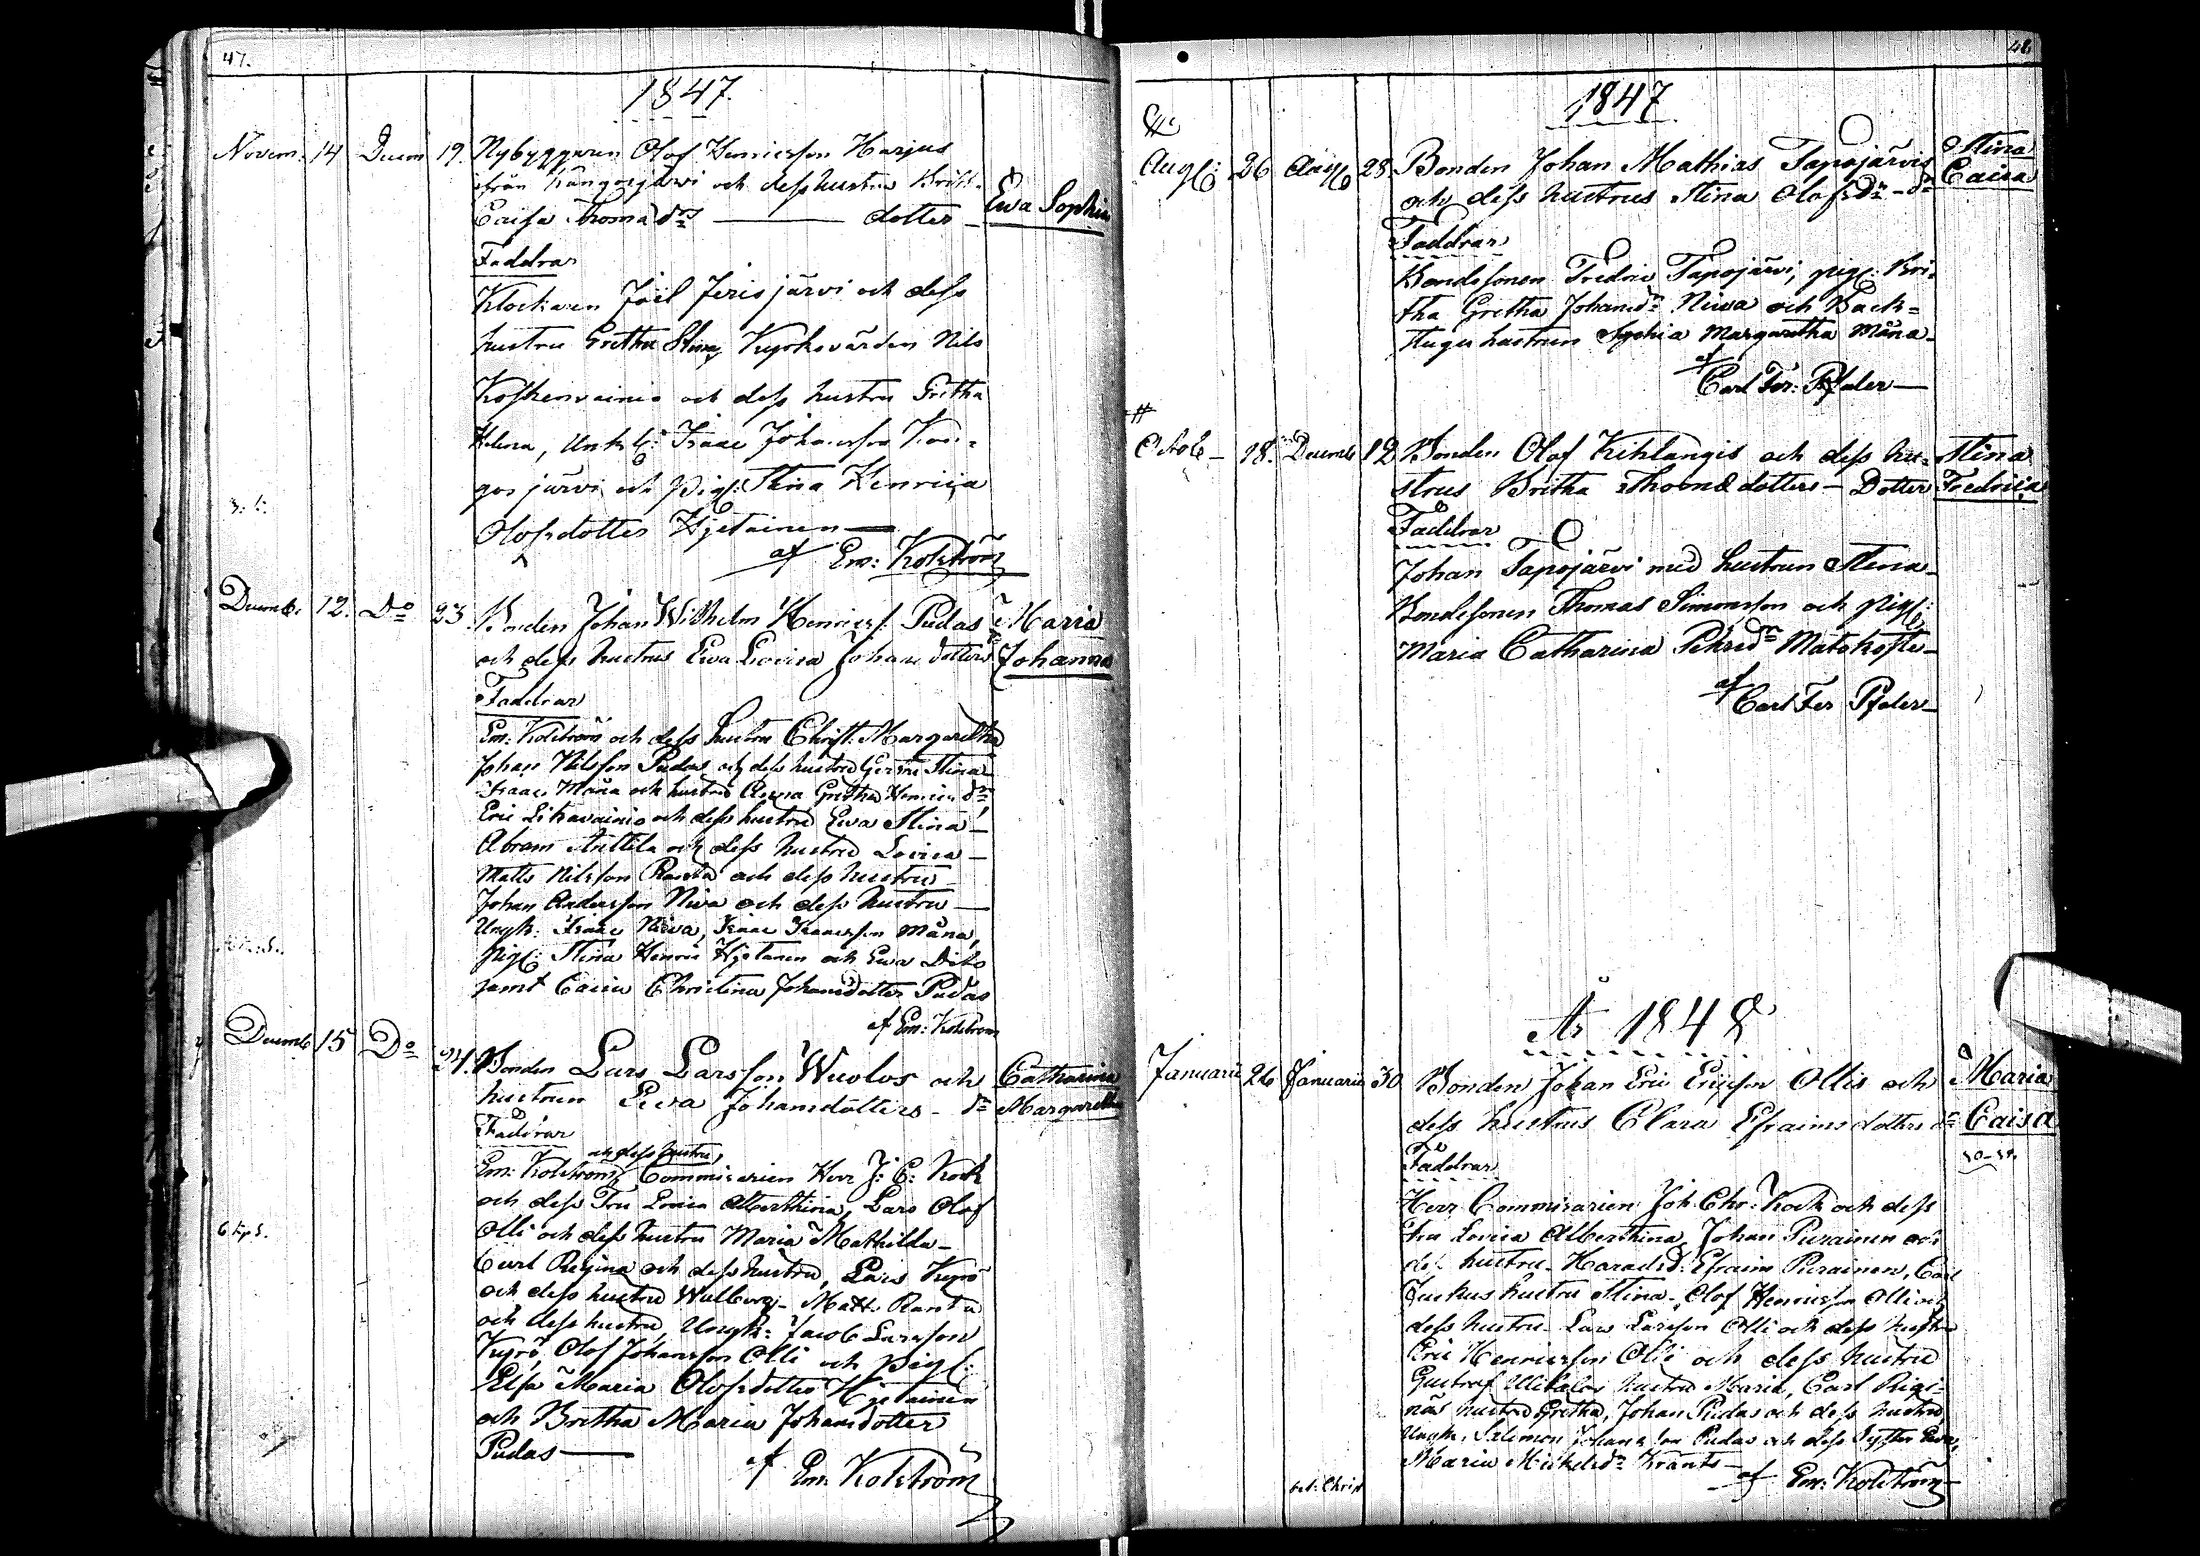 47.
1847.
Novem. 14 Decem 19. Nybyggaren Olof Henricsson Harjus
från Kångosjärvi och dess hustru Britt.
Caisa Thoma dr dotter Ewa Sophia
Faddrar
Klockaren Joel Jerisjärvi och dess
hustru Gretha Stina, Kyrkovärden Nils
Koskenvainio och dess hustru Gretha
Helena, Unk. Isaac Johansson Kan-
gosjärvi och Pig: Stina Henrica
Olofsdotter Hjetainen
af Em: Kolström
Decemb. 12. Do 23. Bonden Johan Wilhelm Henricss. Pudas Maria
och dess hustrus Ewa Lovisa Johans dotters dr Johanna
Faddrar
Em: Kolström och dess hustru Christ. Margaretha
Johan Nilsson Pudas och dess hustru Stina
Isaac Måna och hustru Anna Gretha Henrics dr
Eric Likavainio och dess hustru Ewa Stina
Abram Anttila och dess hustru Lovisa
Matts Nilsson Ranta och dess hustru
Johan Andersson Niva och dess hustru
Ungk: Isaac Niva, Isaac Isaacsson Måna,
pig: Stina Henric Hjetanen och Ewa Dito
samt Caisa Christina Johansdotter Pudas
af Em: Kolström
Decemb 15 Do 24. Bonden Lars Larsson Wuolos och Catharina
hustrun Ewa Johansdotters dr Margaretha
Faddrar
och dess hustru,
Em: Kolström, Commisarien Herr J: C: Kock
och dess Fru Lovisa Alberthina, Lars Olof
Olli och dess hustru Maria Mathilda
Carl Regina och dess hustru, Lars Kyrö
och dess hustru Wallborg, Matts Ranta
och dess hustru, Ungk: Jacob Larsson
Kyrö, Olof Johansson Olli och Pig:
Elsa Maria Olofsdotter Hjetainen
och Britha Maria Johansdotter
Pudas
af Em: Kolström
48
1847
Aug: 26 Aug 28 Bonden Johan Mathias Tapojärvis Stina
och dess hustrus Stina Olofs dr dr Caisa
Faddrar
Bondesonen Fredric Tapojärvi, pig: Bri-
tha Gretha Johans dr Niva och Back-
stugu hustrun Sophia Margaretha Måna
af
Carl Fer: Pfaler
Octob 18. Decemb 12 Bonden Olof Kihlangis och dess hu- Stina
strus Britha Thomæ dotters Dotter Fredrica
Faddrar
Johan Tapojärvi med hustrun Stina
Bondesonen Thomas Simonsson och pig:
Maria Catharina Pehrs dr
af
Carl Fer Pfaler
År 1848
Januarii 26 Januarii 30 Bonden Johan Eric Ericsson Ollis och Maria
dess hustrus Clara Efraims dotters dr Caisa
Faddrar
Herr Commisarien Joh. Chr: Kock och dess
Fru Lovisa Albertina, Johan Purainen och
dess hustru Efraim Purainen, Carl
hustru Stina, Olof Henricsson Olli och
dess hustru Lars Larsson Olli och dess hustru
Eric Henricsson Olli och dess hustru
Gustaf hustru Maria, Carl Rigi-
nas hustru Gretha, Johan Pudas och dess hustru,
Ungk: Salomon Johansson Pudas och dess Syster Ewa,
Maria Mickels dr Krants
af Em: Kolström